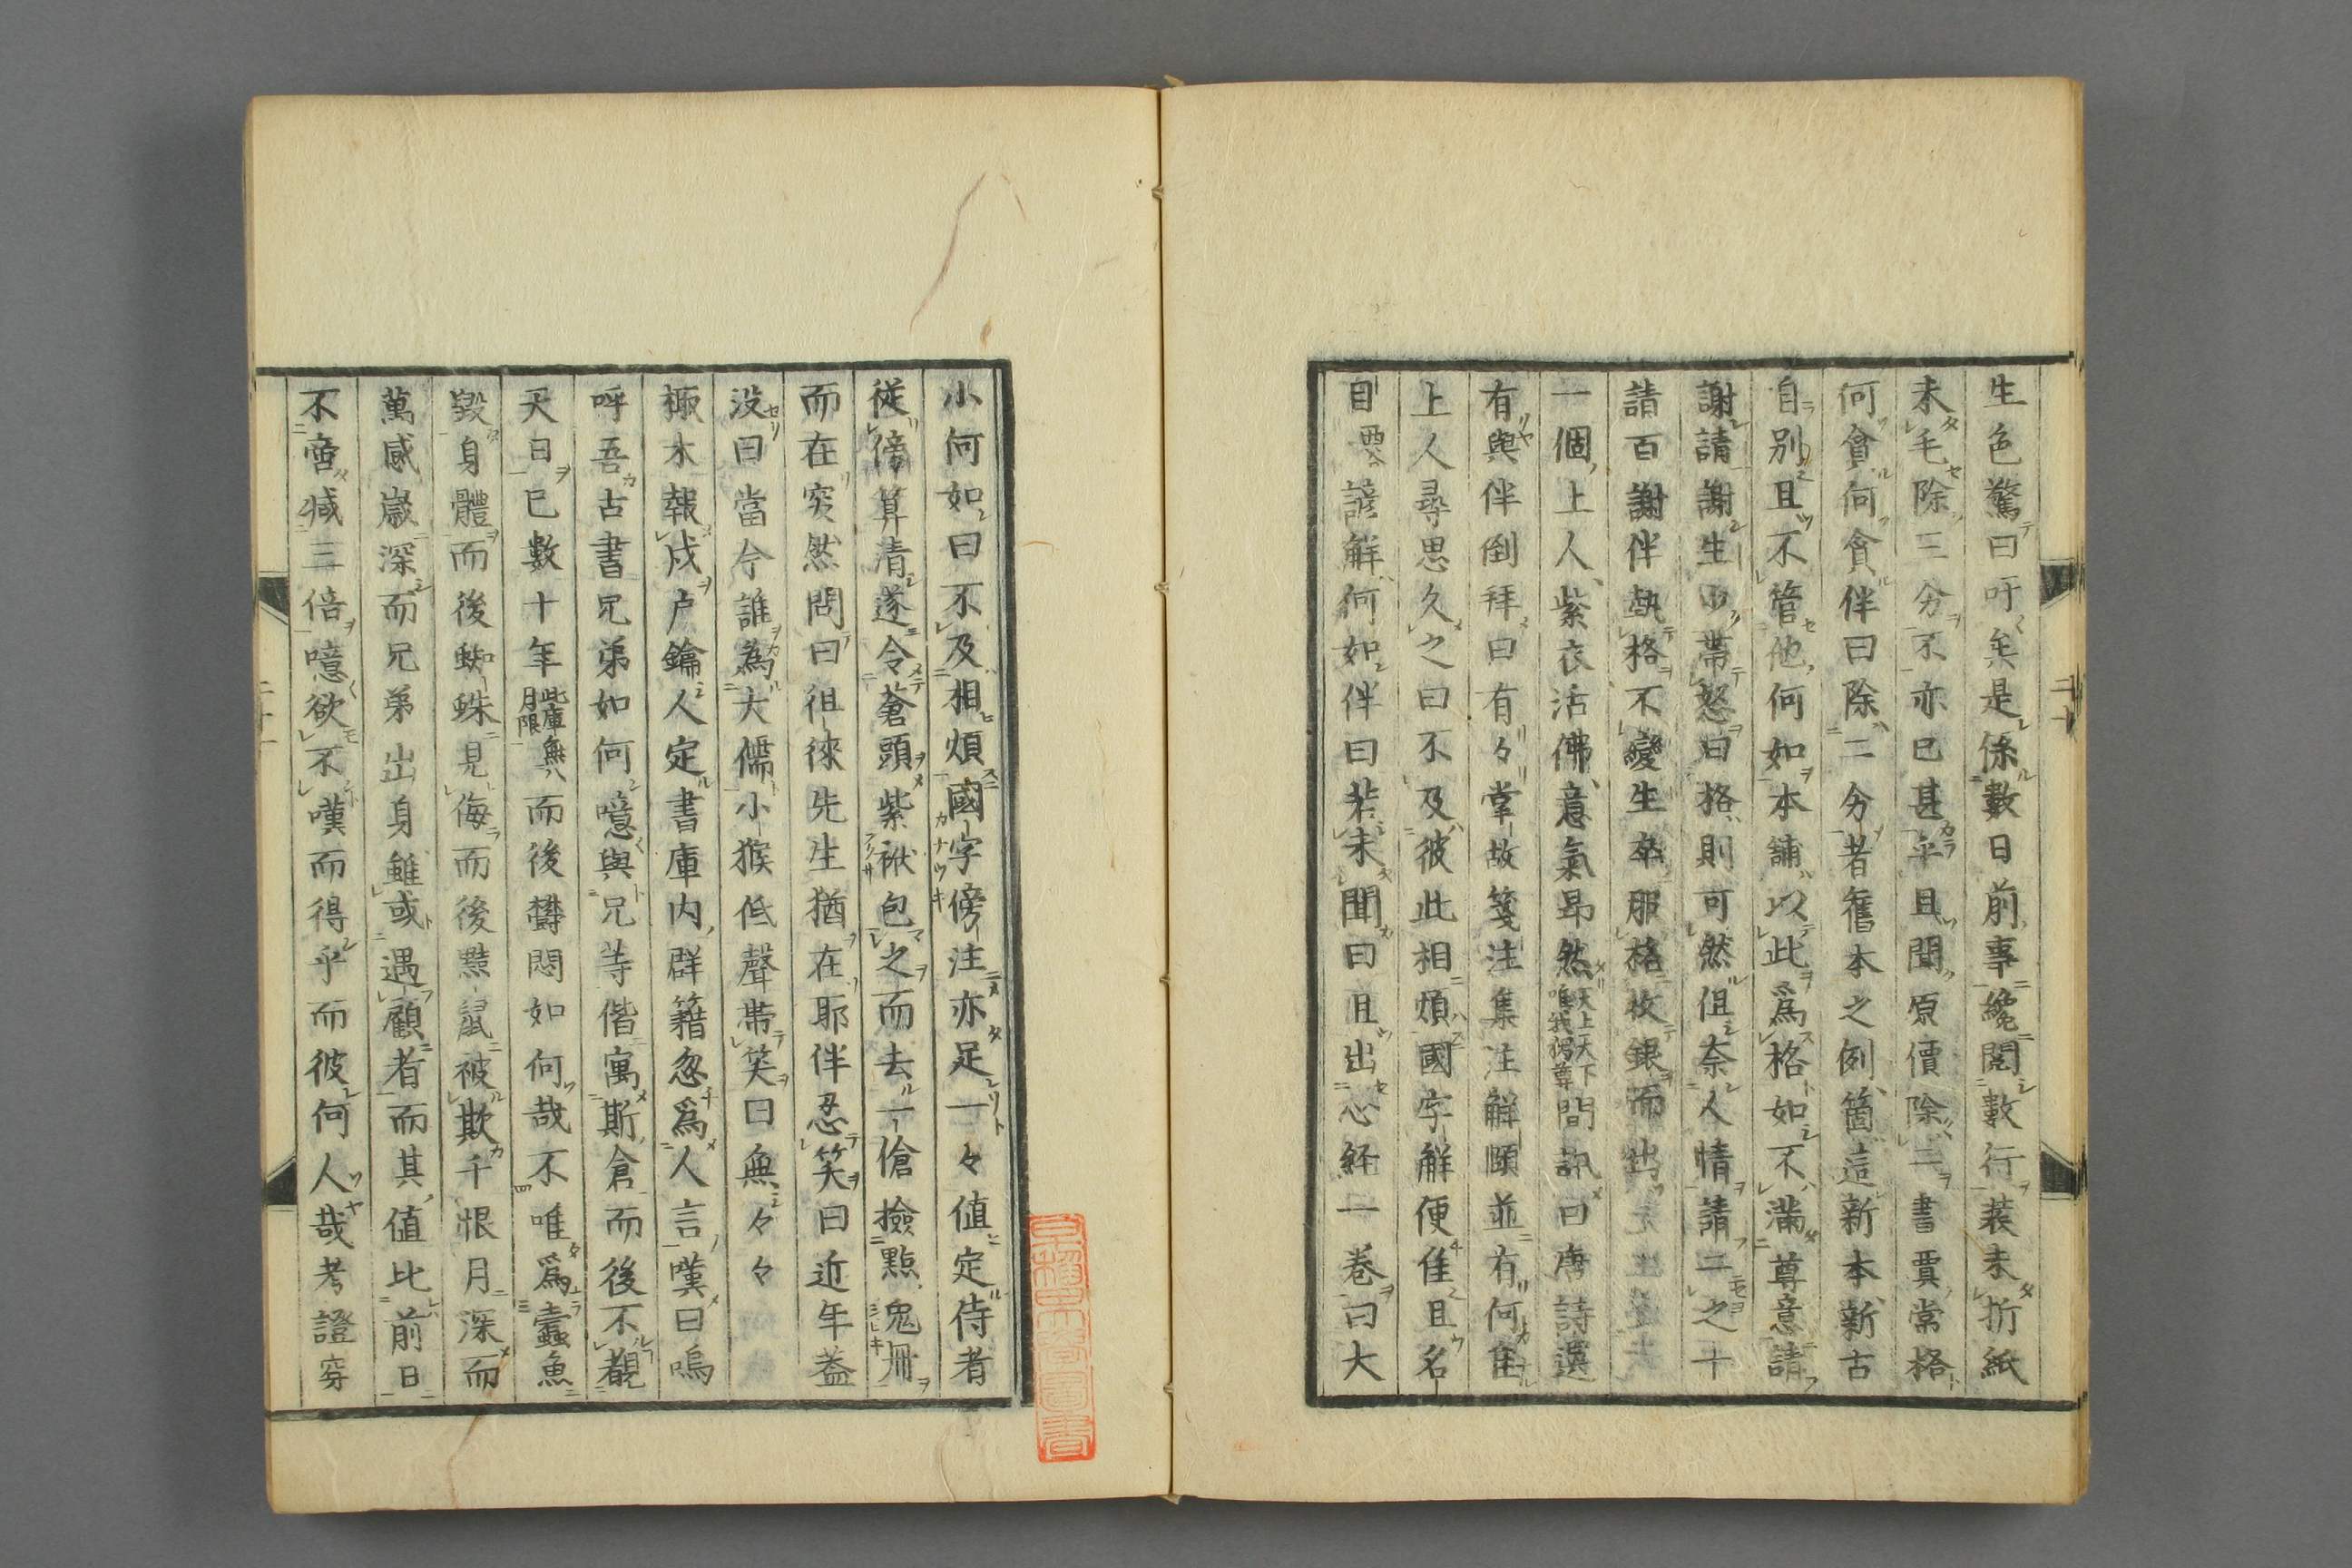 生色驚曰吁矣是係數日前事纔閲數行裝未折紙
未毛除三分不亦已甚乎且聞原價除二書賈常格
何貪何貪伴曰除二分者舊本之例箇這新本新古
自別且不管他何如本舖以此爲格如不滿尊意請
謝請謝生帶怒曰格則可然但奈人情請二之十
請百謝伴執格不變生卒服格枚銀而出
一個上人紫衣活佛意氣昂然天上天下唯我獨尊問訊曰唐詩選
有與伴倒拜曰有々掌故箋注集注解頤並有何隹
上人尋思久之曰不及彼此相煩國字解便隹且名
目諺解何如伴曰若未聞曰且出心経一卷曰大
小何如曰不及相煩國字傍注亦足一々値定侍者
從傍算清遂令蒼頭紫袱包之而去一傖撿點兔冊
而在突然問曰徂徠先生猶在耶伴忍笑曰近年葢
沒曰當今誰為大儒小猴低聲帶笑曰無々々
椒木報戍戸鑰人定書庫内群籍忽爲人言嘆曰嗚
呼吾古書兄弟如何噫與兄等偕寓斯倉而後不覩
天日已數十年此庫無八月限而後欝悶如何哉不唯爲蠧魚
毀身體而後蜘蛛見侮而後黠鼠被欺千恨月深而
萬感嵗深而兄弟出身雖或遇顧者而其値比前日
不啻减三倍噫欲不嘆而得乎而彼何人哉考證穿
二十
二十一